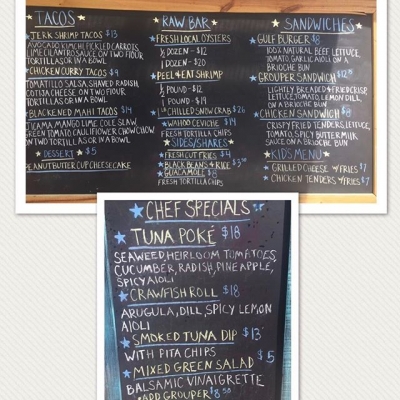 TACOS
★ JERK SHRIMP TACOS $13
AVOCADO, KIMCHI, PICKLED CARROTS,
LIME CILANTRO SAUCE ON TWO FLOUR
TORTILLAS OR IN A BOWL
★ CHICKEN CURRY TACOS $9
TOMATILLO SALSA, SHAVED RADISH,
COTIJA CHEESE ON TWO FLOUR
TORTILLAS OR IN A BOWL
★ BLACKENED MAHI TACOS $14
JICAMA, MANGO, LIME COLE SLAW,
GREEN TOMATO CAULIFLOWER CHOW CHOW
ON TWO TORTILLAS OR IN A BOWL
DESSERT $5
PEANUT BUTTER CUP CHEESECAKE
RAW BAR
FRESH LOCAL OYSTERS
½ DOZEN - $12
1 DOZEN - $20
PEEL & EAT SHRIMP
½ POUND - $12
1 POUND - $19
★ 1 LB CHILLED SNOW CRAB $26
★ WAHOO CEVICHE $14
FRESH TORTILLA CHIPS
SIDES/SHARES
★ FRESH CUT FRIES $4
★ BLACK BEANS & RICE $3
★ GUACAMOLE $8
FRESH TORTILLA CHIPS
SANDWICHES
★ GULF BURGER $8
100% NATURAL BEEF, LETTUCE,
TOMATO, GARLIC AIOLI ON A
BRIOCHE BUN
★ GROUPER SANDWICH $12
LIGHTLY BREADED & FRIED CRISP,
LETTUCE, TOMATO, LEMON DILL,
ON A BRIOCHE BUN
★ CHICKEN SANDWICH $8
CRISPY FRIED TENDERS, LETTUCE,
TOMATO, SPICY BUTTERMILK
SAUCE ON A BRIOCHE BUN
KIDS MENU
★ GRILLED CHEESE W/FRIES $7
★ CHICKEN TENDERS W/FRIES $7
★ CHEF SPECIALS
★ TUNA POKÉ $18
SEAWEED, HEIRLOOM TOMATOES,
CUCUMBER, RADISH, PINEAPPLE,
SPICY AIOLI
★ CRAWFISH ROLL $18
ARUGULA, DILL, SPICY LEMON
AIOLI
★ SMOKED TUNA DIP $13
WITH PITA CHIPS
★ MIXED GREEN SALAD $5
BALSAMIC VINAIGRETTE
★ ADD GROUPER $8.50